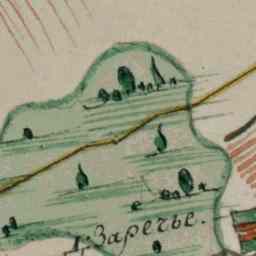 Заречье.